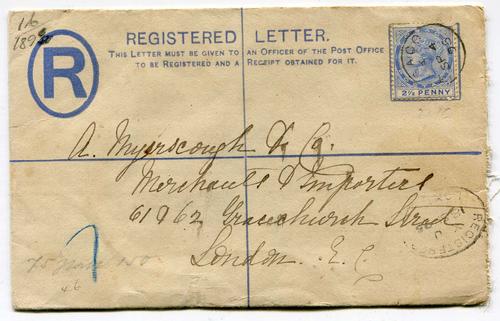 16
R
REGISTERED LETTER.
THIS LETTER MUST BE GIVEN TO AN OFFICER OF THE POST OFFICE
TO BE REGISTERED AND A RECEIPT OBTAINED FOR IT.
ACC
SP
2½ PENNY
A. Myerscough & Co.
Merchants & Importers
61 & 62 Gracechurch Street
London. E. C.
REGISTERED